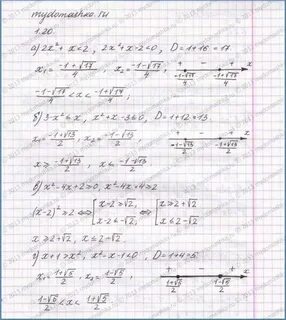 mydomashka.ru
1.20.
а) 2x²+x<2, 2x²+x-2<0, D=1+16=17
x₁=(-1+√17)/4, x₂=(-1-√17)/4
+ - + x
(-1-√17)/4 (-1+√17)/4
(-1-√17)/4 < x < (-1+√17)/4
б) 3-x²≤x, x²+x-3≥0, D=1+12=13
x₁=(-1+√13)/2, x₂=(-1-√13)/2
+ - + x
(-1-√13)/2 (-1+√13)/2
x≥(-1+√13)/2, x≤(-1-√13)/2
в) x²-4x+2≥0, x²-4x+4≥2
(x-2)²≥2 ⟺ [x-2≥√2, x-2≤-√2, ⟺ [x≥2+√2 x≤2-√2
x≥2+√2, x≤2-√2
г) x+1>x², x²-x-1<0, D=1+4=5
x₁=(1+√5)/2, x₂=(1-√5)/2
+ - + x
(1+√5)/2 (1-√5)/2
(1-√5)/2 < x < (1+√5)/2